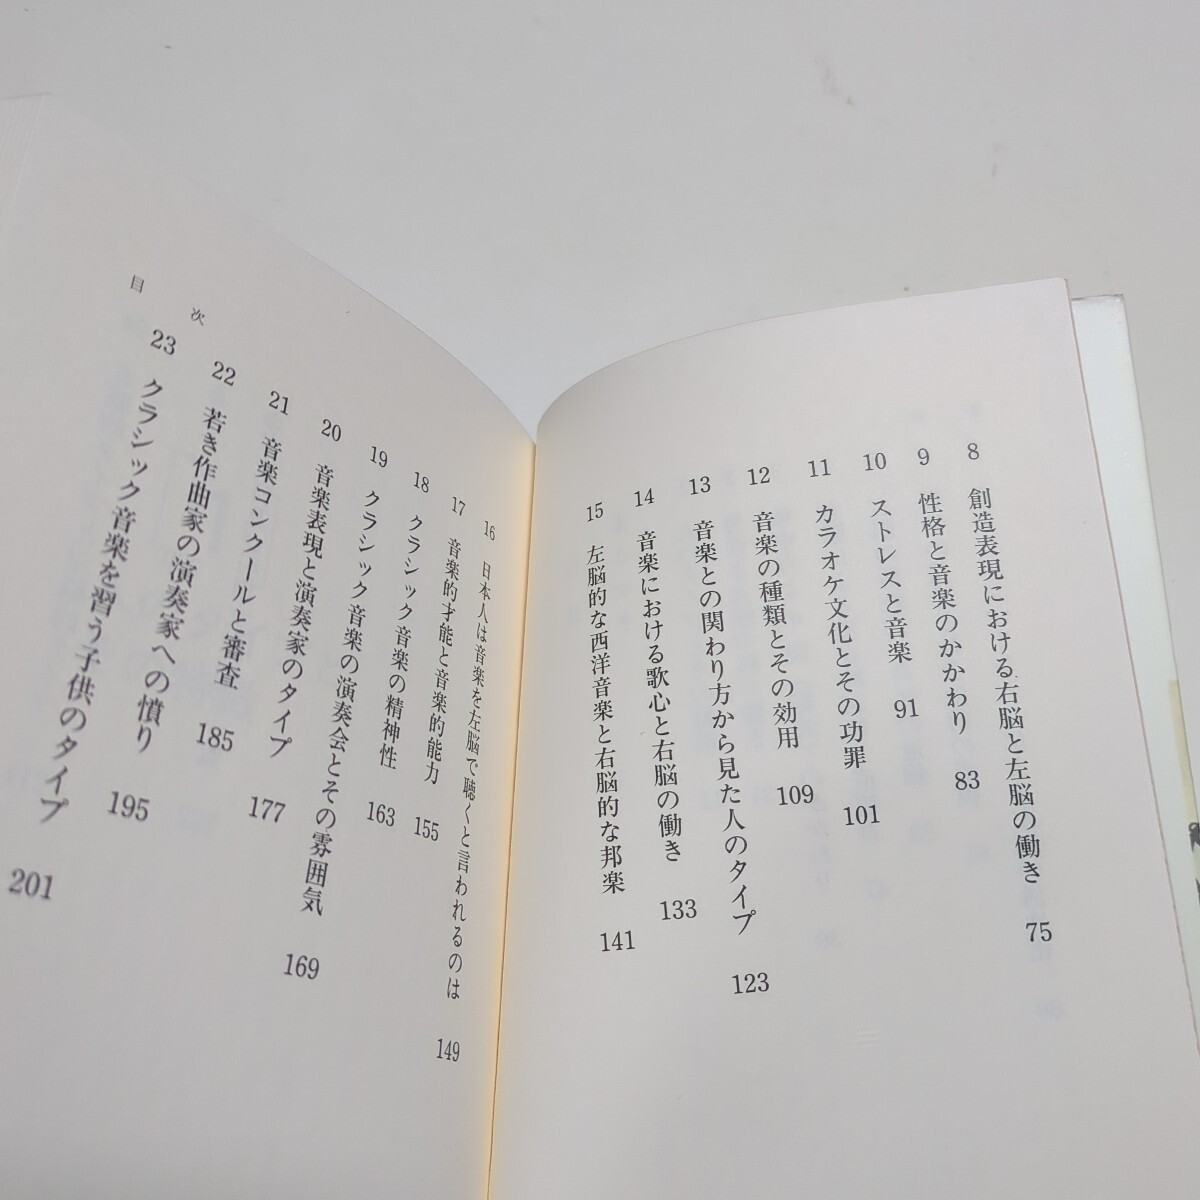 8 創造表現における右脳と左脳の働き 75
9 性格と音楽のかかわり 83
10 ストレスと音楽 91
11 カラオケ文化とその功罪 101
12 音楽の種類とその効用 109
13 音楽との関わり方から見た人のタイプ 123
14 音楽における歌心と右脳の働き 133
15 左脳的な西洋音楽と右脳的な邦楽 141
16 日本人は音楽を左脳で聴くと言われるのは 149
17 音楽的才能と音楽的能力 155
18 クラシック音楽の精神性 163
19 クラシック音楽の演奏会とその雰囲気 169
20 音楽表現と演奏家のタイプ 177
21 音楽コンクールと審査 185
22 若き作曲家の演奏家への憤り 195
23 クラシック音楽を習う子供のタイプ 201
目次